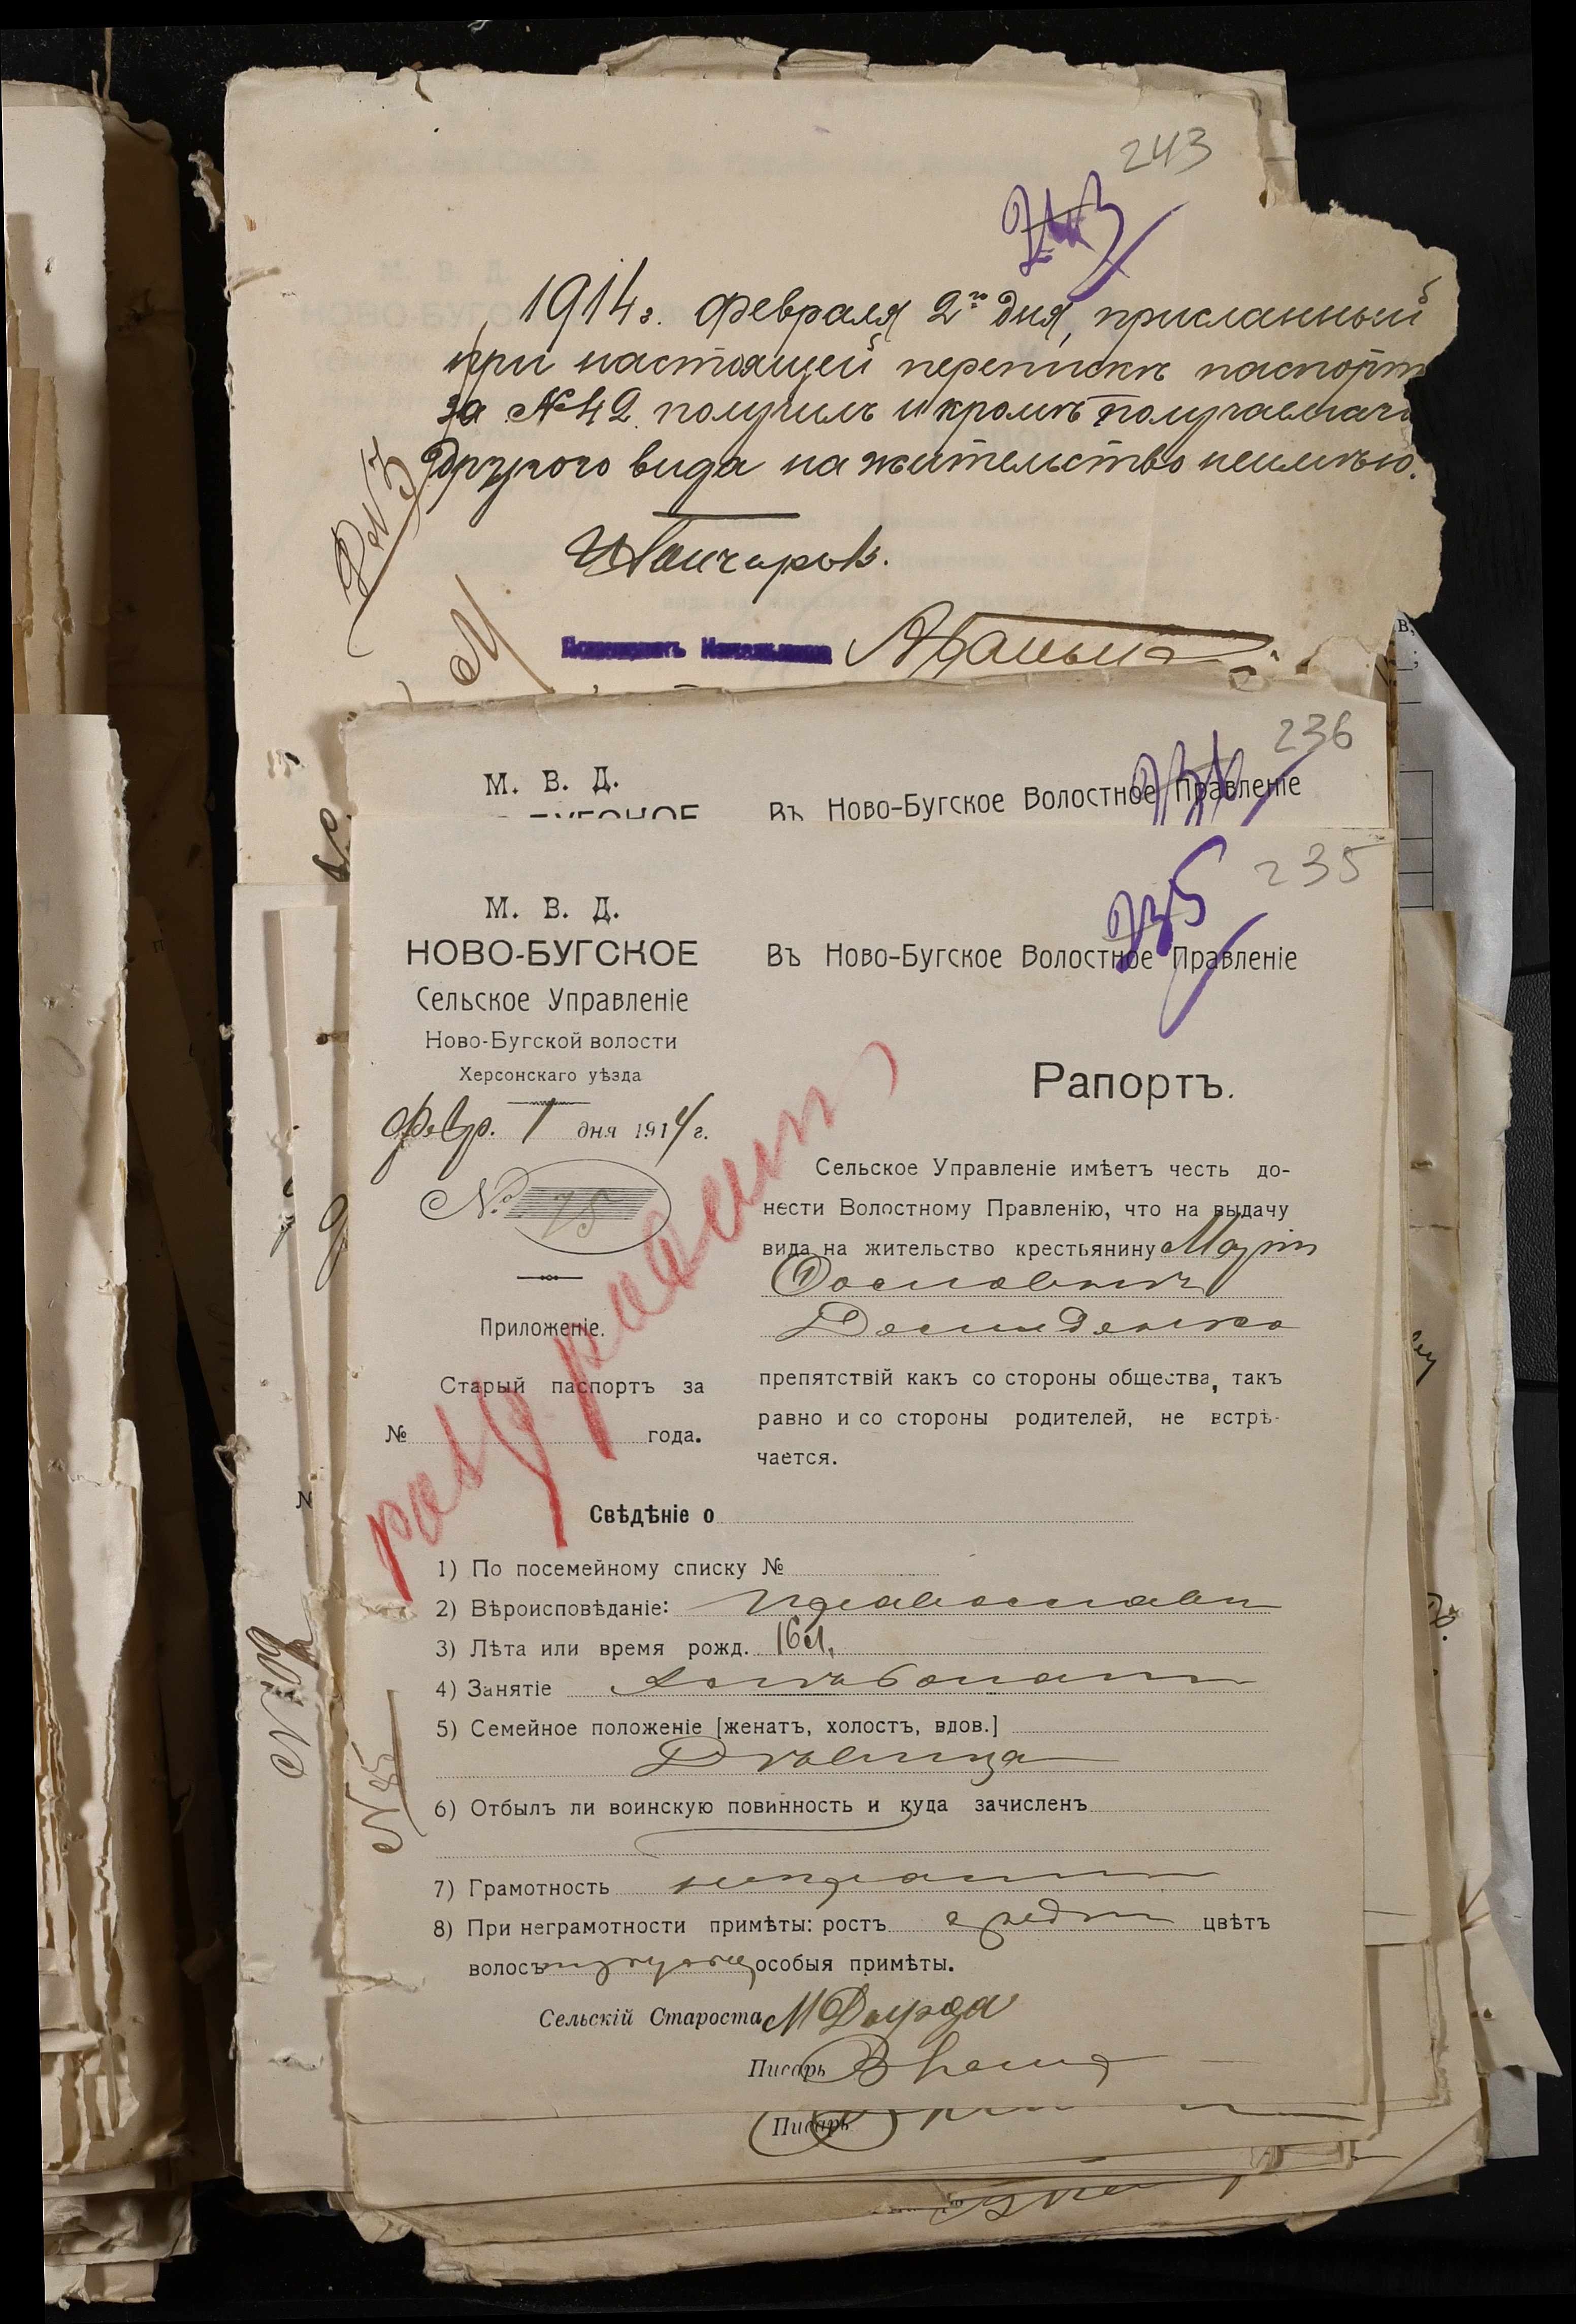 243
243
1914 г. Февраля 2го дня, присланный
при настоящей перепискѣ паспорт
за №42 получилъ и кромѣ получавшаго
другого вида на жительство неимѣю.
236
М. В. Д.
Въ Ново-Бугское Волостное Правленіе
235
235
М. В. Д.
НОВО-БУГСКОЕ
Сельское Управленіе
Ново-Бугской волости
Херсонскаго уѣзда
Февр. 1 дня 1914 г.
№ 75
Приложеніе.
Старый паспортъ за
№ года.
Въ Ново-Бугское Волостное Правленіе
Рапортъ.
Сельское Управленіе имѣетъ честь до-
нести Волостному Правленію, что на выдачу
вида на жительство крестьянину Маріи
Демиденко
препятствій какъ со стороны общества, такъ
равно и со стороны родителей, не встрѣ-
чается.
Свѣдѣніе о
1) По посемейному списку №
2) Вѣроисповѣданіе: православн
3) Лѣта или время рожд. 16 л.
4) Занятіе хлѣбопаш
5) Семейное положеніе [женатъ, холостъ, вдов.]
Дѣвица
6) Отбылъ ли воинскую повинность и куда зачисленъ
7) Грамотность неграм
8) При неграмотности примѣты: ростъ средн цвѣтъ
волосъ особыя примѣты.
Сельскій Староста
Писарь
Писарь